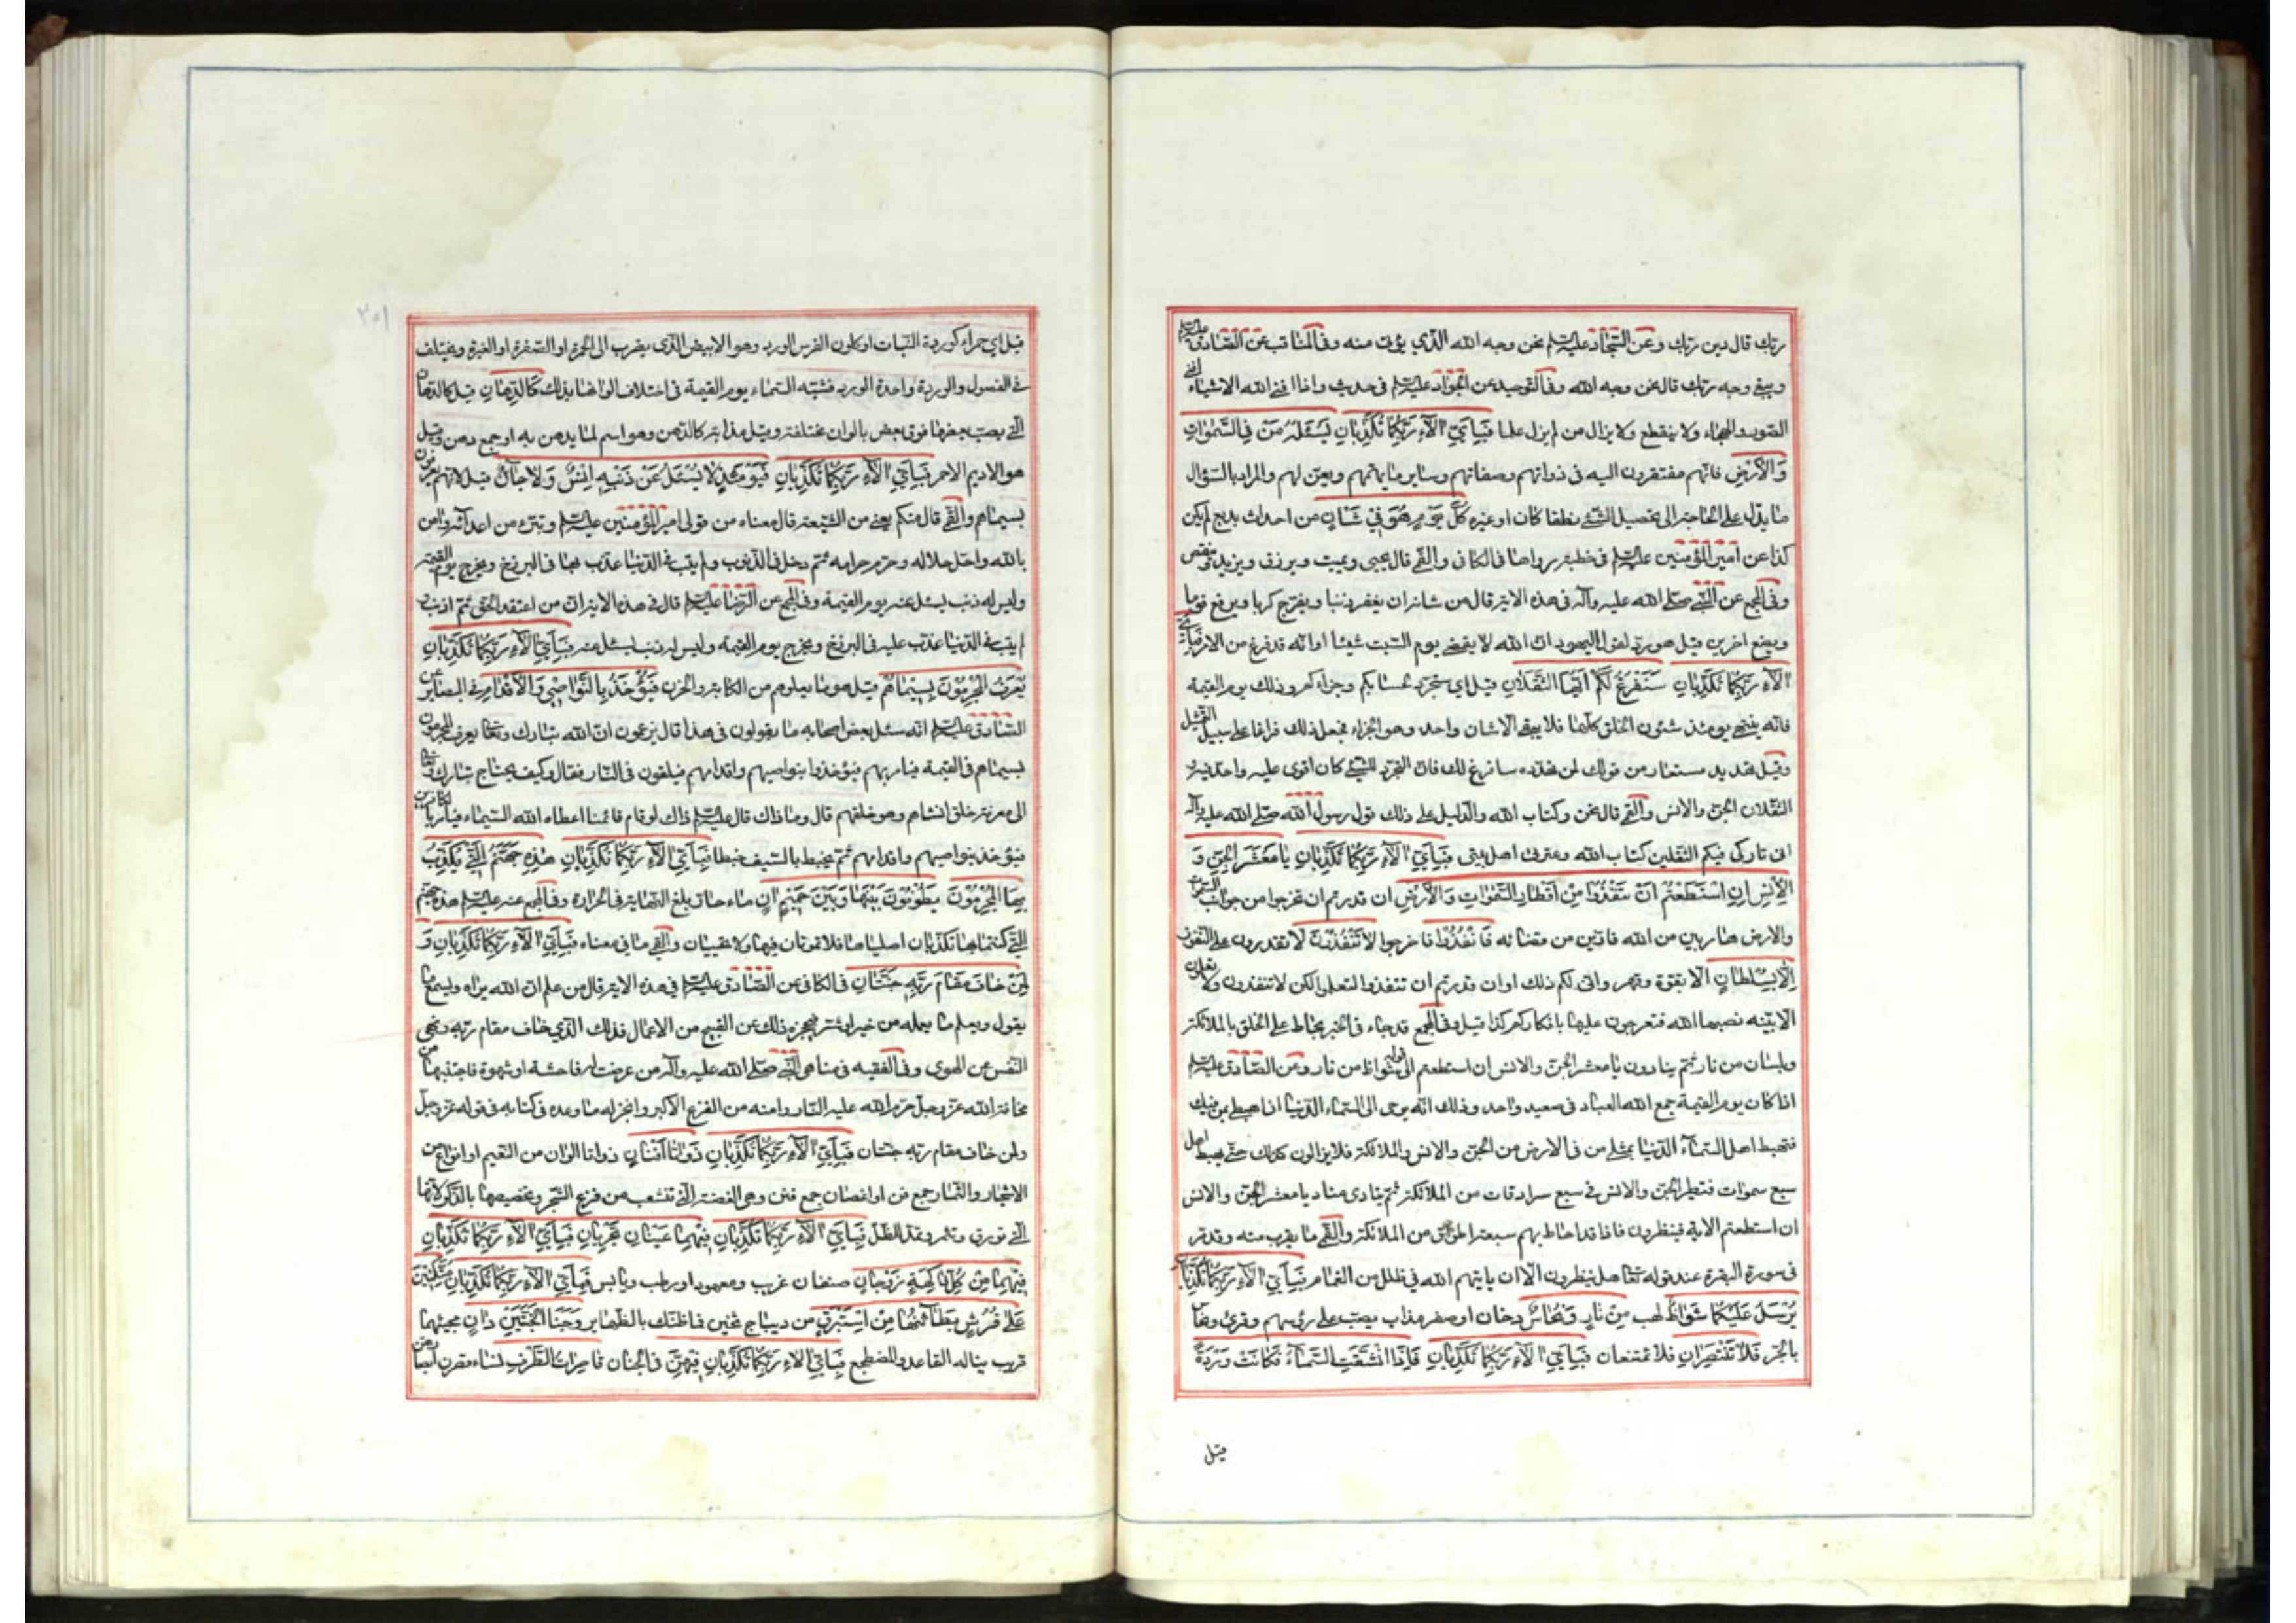 ربك قال دين ربك وعن السجاد عليه السلم نحن وجه الله الذي يؤتى منه وفي المناقب عن الصادق عليه السلم
ويبقى وجه ربك قال نحن وجه الله وفي التوحيد عن الجواد عليه السلم في حديث واذا افنى الله الاشياء افنى
الصور والهجاء ولا ينقطع ولا يزال من لم يزل عالما فَبِأَيِّ آلَاءِ رَبِّكُمَا تُكَذِّبَانِ يَسْئَلُهُ مَنْ فِي السَّمٰوَاتِ
وَالْأَرْضِ فانهم مفتقرون اليه في ذواتهم وصفاتهم وساير ما يهمهم ويعن لهم والمراد بالسؤال
ما يدل على الحاجة الى تحصيل الشئ نطقا كان او غيره كُلَّ يَوْمٍ هُوَ فِي شَانٍ من احداث بديع لم يكن
كذا عن امير المؤمنين عليه السلم في خطبة رواها في الكافي والقمي قال يحيى ويميت ويرزق ويزيد وينقص
وفي المجمع عن النبي صلى الله عليه وآله في هذه الاية قال من شانه ان يغفر ذنبا ويفرج كربا ويرفع قوما
ويضع اخرين قيل هو رد لقول اليهود ان الله لا يقضي يوم السبت شيئا او انه قد فرغ من الامر فَبِأَيِّ
آلَاءِ رَبِّكُمَا تُكَذِّبَانِ سَنَفْرُغُ لَكُمْ اَيُّهَا الثَّقَلَانِ قيل اي سنتجرد لحسابكم وجزاءكم وذلك يوم القيمة
فانه ينتهي يومئذ شئون الخلق كلها فلا يبقى الا شان واحد وهو الجزاء فجعل ذلك فراغا على سبيل التمثيل
وقيل تهديد مستعار من قولك لمن تهدده سافرغ لك فان المتجرد للشئ كان اقوى عليه واجد فيه
الثقلان الجن والانس والقمي قال نحن وكتاب الله والدليل على ذلك قول رسول الله صلى الله عليه وآله
اني تارك فيكم الثقلين كتاب الله وعترتي اهل بيتي فَبِأَيِّ آلَاءِ رَبِّكُمَا تُكَذِّبَانِ يَا مَعْشَرَ الْجِنِّ وَ
الْاِنْسِ اِنِ اسْتَطَعْتُمْ اَنْ تَنْفُذُوا مِنْ اَقْطَارِ السَّمٰوَاتِ وَالْاَرْضِ ان قدرتم ان تخرجوا من جوانب السموات
والارض هاربين من الله فارين من قضائه فَانْفُذُوا فاخرجوا لَا تَنْفُذُونَ لا تقدرون على النفوذ
اِلَّا بِسُلْطَانٍ الا بقوة وقهر وانى لكم ذلك او ان قدرتم ان تنفذوا لتعلموا لكن لا تنفذون ولا تعلمون
الا ببينة نصبها الله فتعرجون عليها بافكاركم كذا قيل وفي المجمع قد جاء في الخبر يحاط على الخلق بالملائكة
وبلسان من نار ثم ينادون يا معشر الجن والانس ان استطعتم الى قوله شواظ من نار وعن الصادق عليه السلم
اذا كان يوم القيمة جمع الله العباد في صعيد واحد وذلك انه يوحى الى السماء الدنيا ان اهبطي بمن فيك
فتهبط اهل السماء الدنيا بمثلي من في الارض من الجن والانس والملائكة فلا يزالون كذلك حتى يهبط اهل
سبع سموات فتطير الجن والانس في سبع سرادقات من الملائكة ثم ينادي مناد يا معشر الجن والانس
ان استطعتم الاية فينظرون فاذا قد احاط بهم سبعة اطواق من الملائكة والقمي ما يقرب منه وقد مر
في سورة البقرة عند قوله تعالى هل ينظرون الا ان ياتيهم الله في ظلل من الغمام فَبِأَيِّ آلَاءِ رَبِّكُمَا تُكَذِّبَانِ
يُرْسَلُ عَلَيْكُمَا شُوَاظٌ لهب مِنْ نَارٍ وَنُحَاسٌ دخان او صفر مذاب يصب على رؤسهم وقرئ ونحاس
بالجر فَلَا تَنْتَصِرَانِ فلا تمتنعان فَبِأَيِّ آلَاءِ رَبِّكُمَا تُكَذِّبَانِ فَاِذَا انْشَقَّتِ السَّمَاءُ فَكَانَتْ وَرْدَةً
قيل
٣٠١
قيل اي حمراء كوردة النبات او كلون الفرس الورد وهو الابيض الذي يضرب الى الحمرة او الصفرة او الغبرة ويختلف
في الفصول والوردة واحدة الورد فشبه السماء يوم القيمة في اختلاف الوانها بذلك كَالدِّهَانِ قيل كالدهان
التي يصب بعضها فوق بعض بالوان مختلفة وقيل مذابة كالدهن وهو اسم لما يدهن به او جمع دهن وقيل
هو الاديم الاحمر فَبِأَيِّ آلَاءِ رَبِّكُمَا تُكَذِّبَانِ فَيَوْمَئِذٍ لَا يُسْئَلُ عَنْ ذَنْبِهِ اِنْسٌ وَلَا جَانٌّ قيل لانهم يعرفون
بسيماهم والقمي قال منكم يعني من الشيعة قال معناه من تولى امير المؤمنين عليه السلم وتبرء من اعدائه وامن
بالله واحل حلاله وحرم حرامه ثم دخل في الذنوب ولم يتب في الدنيا عذب بها في البرزخ ويخرج يوم القيمة
وليس له ذنب يسئل عنه يوم القيمة وفي المجمع عن الرضا عليه السلم قال في هذه الاية ان من اعتقد الحق ثم اذنب و
لم يتب في الدنيا عذب عليه في البرزخ ويخرج يوم القيمة وليس له ذنب يسئل عنه فَبِأَيِّ آلَاءِ رَبِّكُمَا تُكَذِّبَانِ
يُعْرَفُ الْمُجْرِمُونَ بِسِيمَاهُمْ قيل هو ما يعلوهم من الكآبة والحزن فَيُؤْخَذُ بِالنَّوَاصِي وَالْاَقْدَامِ في البصاير عن
الصادق عليه السلم انه سئل بعض اصحابه ما يقولون في هذا قال يزعمون ان الله تبارك وتعالى يعرف المجرمون
بسيماهم في القيمة فيامر بهم فيؤخذوا بنواصيهم واقدامهم فيلقون في النار فقال وكيف يحتاج تبارك وتعالى
الى معرفة خلق انشاهم وهو خلقهم قال وما ذاك قال عليه السلم ذاك لو قام قائمنا اعطاه الله السيماء فيامر بالكافرين
فيؤخذ بنواصيهم واقدامهم ثم يخبط بالسيف خبطا فَبِأَيِّ آلَاءِ رَبِّكُمَا تُكَذِّبَانِ هٰذِهِ جَهَنَّمُ الَّتِي يُكَذِّبُ
بِهَا الْمُجْرِمُونَ يَطُوفُونَ بَيْنَهَا وَبَيْنَ حَمِيمٍ اٰنٍ ماء حار بلغ النهاية في الحرارة وفي المجمع عنه عليه السلم هذه جهنم
التي كنتما بها تكذبان اصلياها فلا تموتان فيها ولا تحييان والقمي ما في معناه فَبِأَيِّ آلَاءِ رَبِّكُمَا تُكَذِّبَانِ وَ
لِمَنْ خَافَ مَقَامَ رَبِّهِ جَنَّتَانِ في الكافي عن الصادق عليه السلم في هذه الاية قال من علم ان الله يراه ويسمع ما
يقول ويعلم ما يعمله من خير او شر فيحجزه ذلك عن القبيح من الاعمال فذلك الذي خاف مقام ربه ونهى
النفس عن الهوى وفي الفقيه في مناهي النبي صلى الله عليه وآله من عرضت له فاحشة او شهوة فاجتنبها من
مخافة الله عز وجل حرم الله عليه النار وامنه من الفزع الاكبر وانجز له ما وعده في كتابه في قوله عز وجل
ولمن خاف مقام ربه جنتان فَبِأَيِّ آلَاءِ رَبِّكُمَا تُكَذِّبَانِ ذَوَاتَا اَفْنَانٍ ذواتا الوان من النعيم او انواع من
الاشجار والثمار جمع فن او اغصان جمع فنن وهي الغصنة التي تنشعب من فرع الشجر وتخصيصها بالذكر لانها
التي تورق وتثمر وتمد الظل فَبِأَيِّ آلَاءِ رَبِّكُمَا تُكَذِّبَانِ فِيهِمَا عَيْنَانِ تَجْرِيَانِ فَبِأَيِّ آلَاءِ رَبِّكُمَا تُكَذِّبَانِ
فِيهِمَا مِنْ كُلِّ فَاكِهَةٍ زَوْجَانِ صنفان غريب ومعهود او رطب ويابس فَبِأَيِّ آلَاءِ رَبِّكُمَا تُكَذِّبَانِ مُتَّكِئِينَ
عَلَى فُرُشٍ بَطَائِنُهَا مِنْ اِسْتَبْرَقٍ من ديباج ثخين فما ظنك بالظهاير وَجَنَا الْجَنَّتَيْنِ دَانٍ مجنيهما
قريب يناله القاعد والمضطجع فَبِأَيِّ آلَاءِ رَبِّكُمَا تُكَذِّبَانِ فِيهِنَّ في الجنان قَاصِرَاتُ الطَّرْفِ نساء قصرن ابصارهن